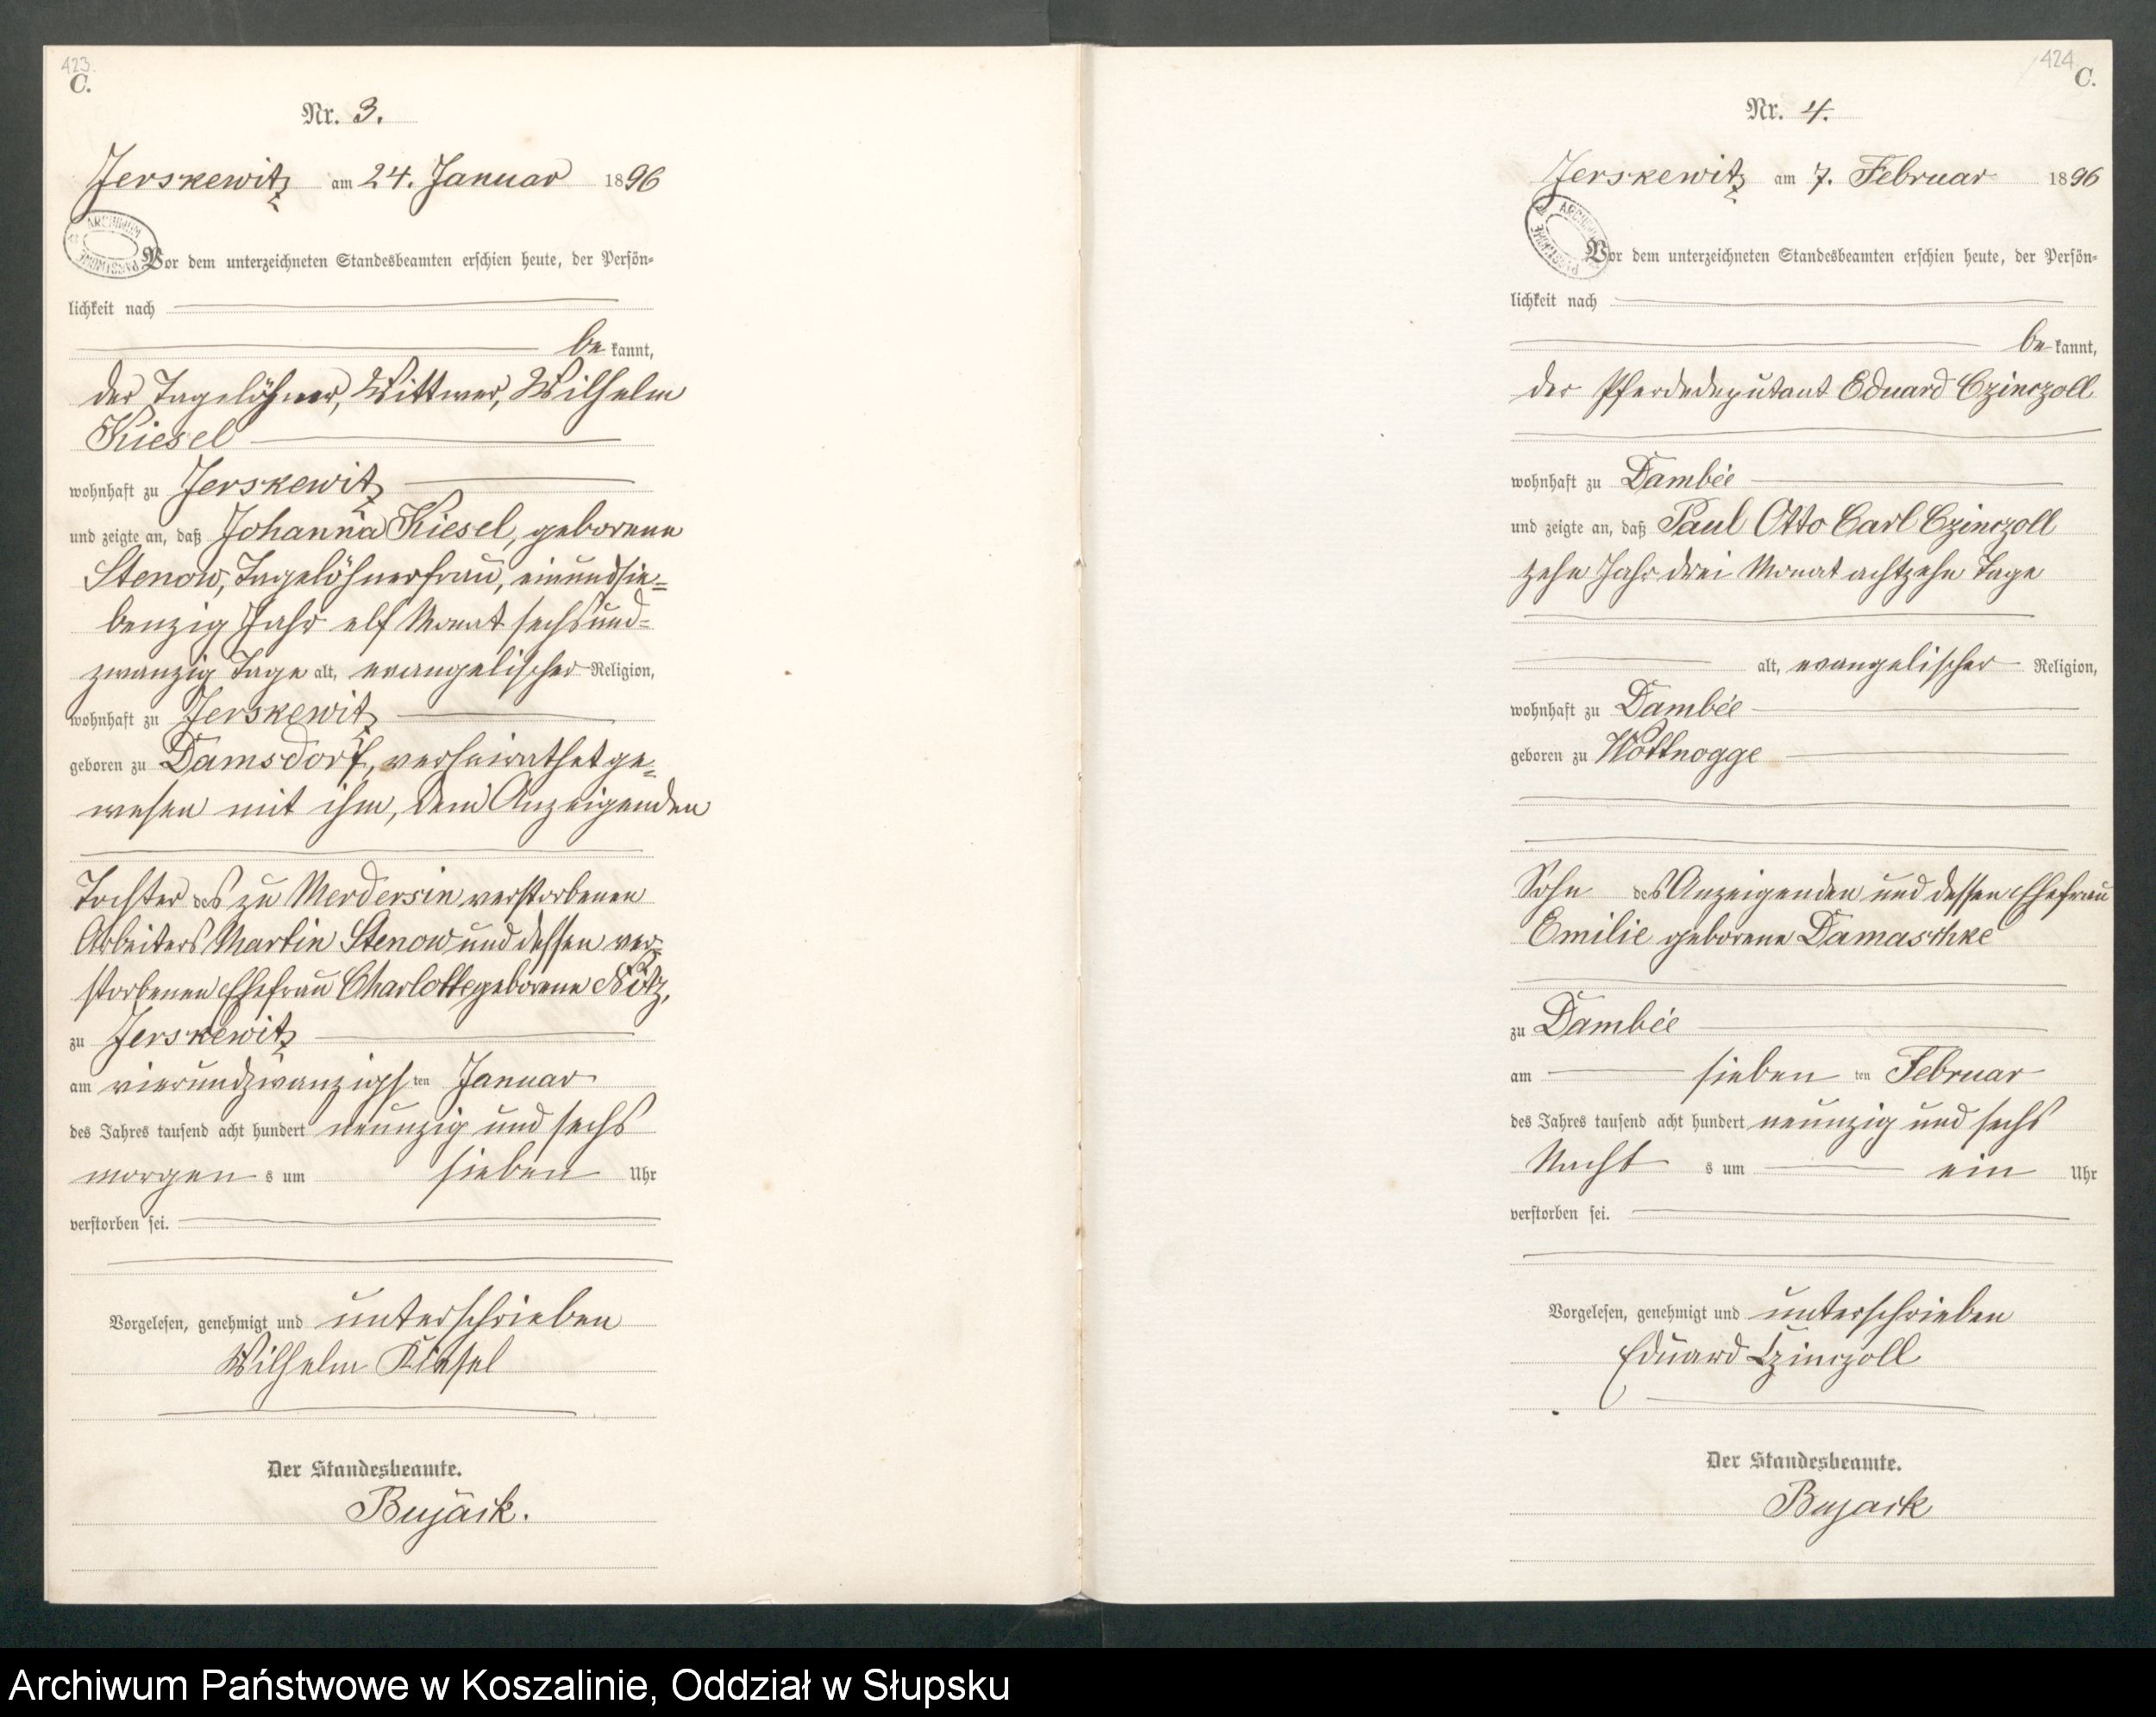 423.
C.
Nr. 3.
Jerskewitz am 24. Januar 1896
ARCHIWUM PAŃSTWOWE
Vor dem unterzeichneten Standesbeamten erschien heute, der Persön=
lichkeit nach
be kannt,
der Tagelöhner, Wittwer, Wilhelm
Kiesel
wohnhaft zu Jerskewitz
und zeigte an, daß Johanna Kiesel, geborene
Stenow, Tagelöhnerfrau, einundsie=
benzig Jahr elf Monat sechsund=
zwanzig Tage alt, evangelischer Religion,
wohnhaft zu Jerskewitz
geboren zu Damsdorf, verheirathet ge=
wesen mit ihm, dem Anzeigenden
Tochter des zu Merdersin verstorbenen
Arbeiters Martin Stenow und dessen ver=
storbenen Ehefrau Charlotte geborene
zu Jerskewitz
am vierundzwanzigsten Januar
des Jahres tausend acht hundert neunzig und sechs
morgen s um sieben Uhr
verstorben sei.
Vorgelesen, genehmigt und unterschrieben
Wilhelm Kiesel
Der Standesbeamte.
Bujack.
424
C.
Nr. 4.
Jerskewitz am 7. Februar 1896
Vor dem unterzeichneten Standesbeamten erschien heute, der Persön=
lichkeit nach
be kannt,
der Pferdedeputant Eduard Czinczoll
wohnhaft zu Dambée
und zeigte an, daß Paul Otto Carl Czinczoll
zehn Jahr drei Monat achtzehn Tage
alt, evangelischer Religion,
wohnhaft zu Dambée
geboren zu Wottnogge
Sohn des Anzeigenden und dessen Ehefrau
Emilie geborene Damaschke
zu Dambée
am sieben ten Februar
des Jahres tausend acht hundert neunzig und sechs
Nacht s um ein Uhr
verstorben sei.
Vorgelesen, genehmigt und unterschrieben
Eduard Czinczoll
Der Standesbeamte.
Bujack
Archiwum Państwowe w Koszalinie, Oddział w Słupsku